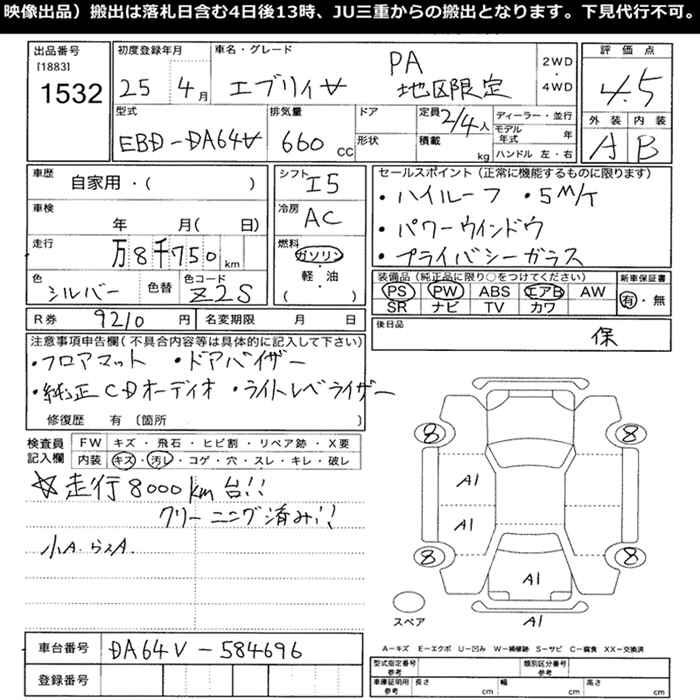 映像出品）搬出は落札日含む4日後13時、JU三重からの搬出となります。下見代行不可。
出品番号
[1883]
1532
初度登録年月
25 4月
車名・グレード
エブリィ
PA
地区限定
2WD
・
4WD
評価点
4.5
外装 内装
A B
型式
EBD-DA64V
排気量
660 CC
ドア
形状
定員 2/4人
積載 kg
ディーラー・並行
モデル年式 年
ハンドル 左・右
車歴
自家用・( )
車検
年 月( 日)
走行
万8千750km
色
シルバー
色替
色コード
Z2S
シフト
I5
冷房
AC
燃料
ガソリン
・
軽・油
( )
セールスポイント（正常に機能するものに限ります）
・ハイルーフ ・5M/T
・パワーウインドウ
・プライバシーガラス
装備品（純正品に限り○をつけてください）
PS PW ABS エアB AW
SR ナビ TV カワ
新車保証書
有・無
R券 9210円
名変期限 月 日
後日品
保
注意事項申告欄（不具合内容等は具体的に記入して下さい）
・フロアマット ・ドアバイザー
・純正CDオーディオ ・ライトレベライザー
修復歴 有〔箇所 〕
検査員記入欄
FW キズ・飛石・ヒビ割・リペア跡・X要
内装 キズ・汚レ・コゲ・穴・スレ・キレ・破レ
☆走行8000km台!!
クリーニング済み!!
小A.
8 8
A1
A1
8 8
A1
スペア
A1
A－キズ E－エクボ U－凹み W－補修跡 S－サビ C－腐食 XX－交換済
車台番号 DA64V-584696
登録番号
型式指定番号 参考
類別区分番号 参考
車庫証明用 参考
長さ cm
幅 cm
高さ cm